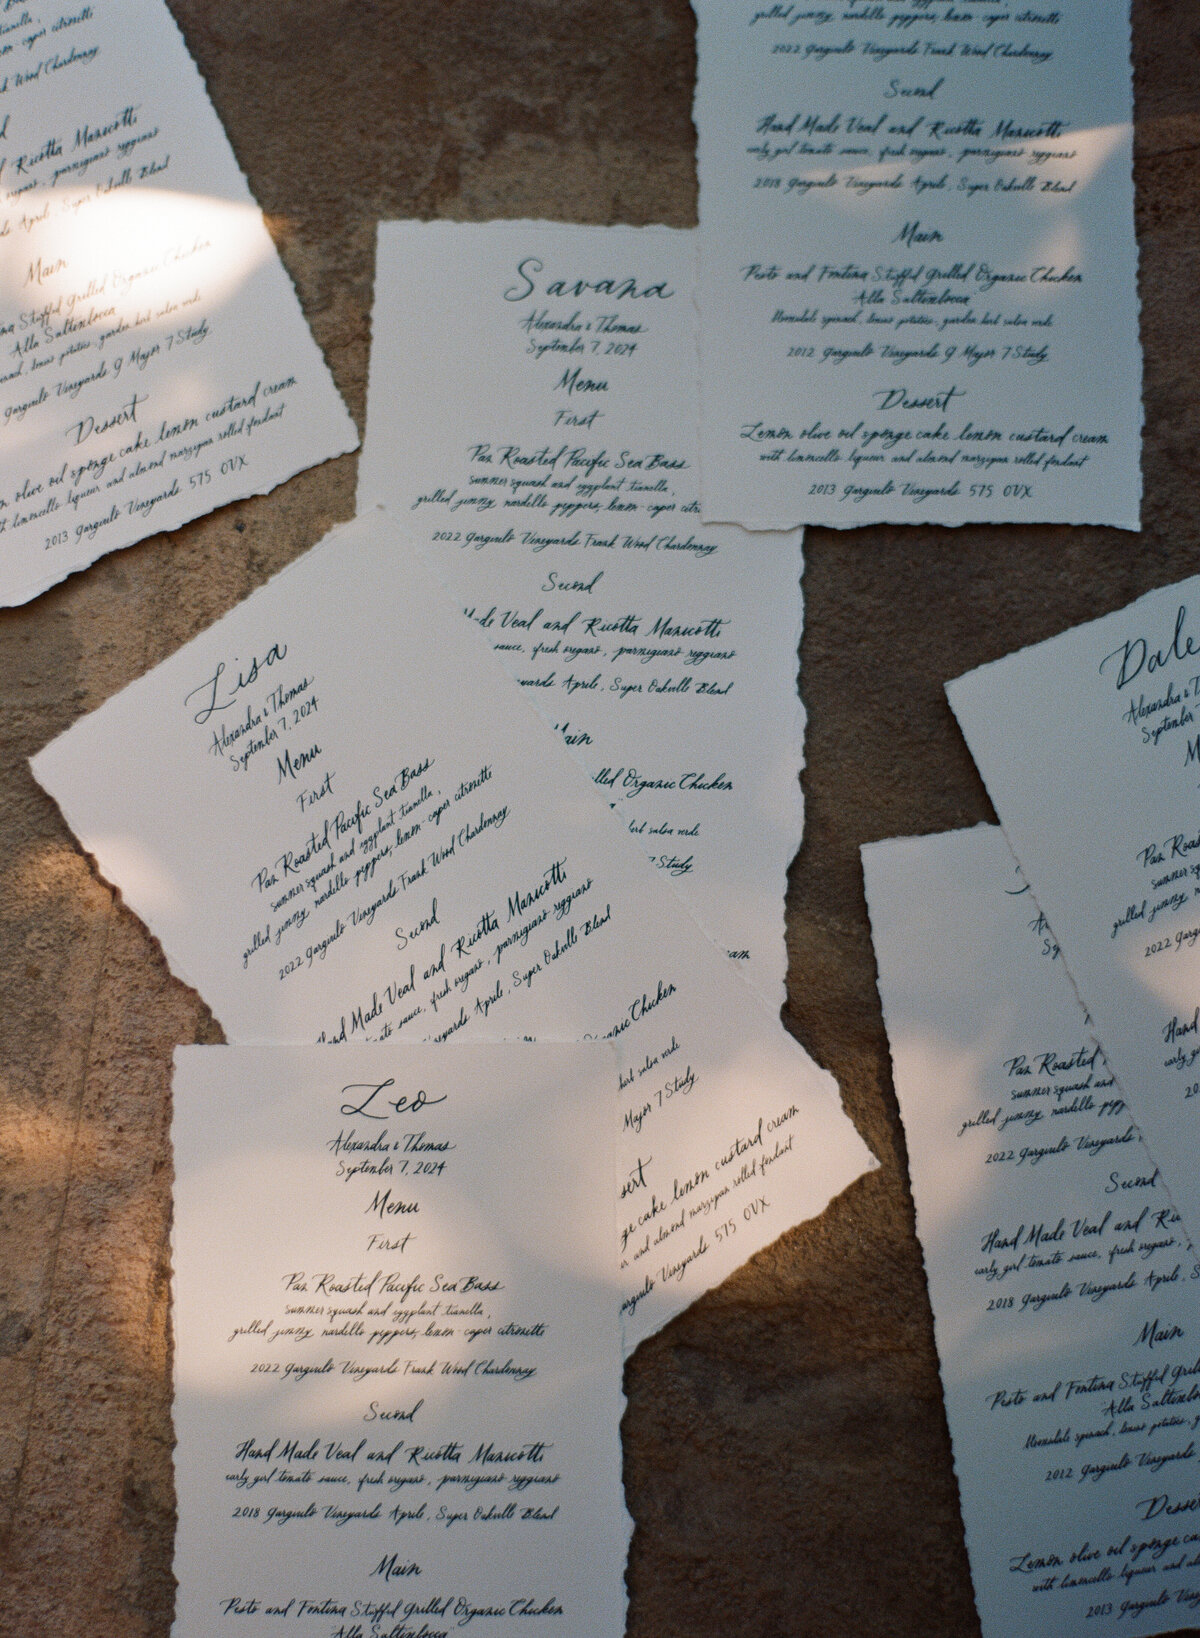 tianella,
caper citronette
Wood Chardonnay
Ricotta Manicotti
oregano, parmigiano reggiano
Aprile, Super Oakville Blend
Main
Stuffed Grilled Organic Chicken
Alla Saltenbocca
potatoes, garden herb salsa verde
Gargiulo Vineyards G Major 7 Study
Dessert
olive oil sponge cake lemon custard cream
limoncello liqueur and almond marzipan rolled fondant
2013 Gargiulo Vineyards 575 OVX
grilled jimmy nardello peppers, lemon caper citronette
2022 Gargiulo Vineyards Frank Wood Chardonnay
Second
Hand Made Veal and Ricotta Manicotti
early girl tomato sauce, fresh oregano, parmigiano reggiano
2018 Gargiulo Vineyards Aprile, Super Oakville Blend
Main
Pesto and Fontina Stuffed Grilled Organic Chicken
Alla Saltenbocca
Bloomsdale spinach, potatoes, garden herb salsa verde
2012 Gargiulo Vineyards G Major 7 Study
Dessert
Lemon olive oil sponge cake lemon custard cream
with limoncello liqueur and almond marzipan rolled fondant
2013 Gargiulo Vineyards 575 OVX
Savana
Alexandra & Thomas
September 7, 2024
Menu
First
Pan Roasted Pacific Sea Bass
summer squash and eggplant tianella,
grilled jimmy nardello peppers, lemon-caper
2022 Gargiulo Vineyards Frank Wood Chardonnay
Second
Veal and Ricotta Manicotti
sauce, fresh oregano, parmigiano reggiano
Aprile, Super Oakville Blend
Main
Organic Chicken
herb salsa verde
7 Study
Lisa
Alexandra & Thomas
September 7, 2024
Menu
First
Pan Roasted Pacific Sea Bass
summer squash and eggplant tianella,
grilled jimmy nardello peppers, lemon-caper citronette
2022 Gargiulo Vineyards Frank Wood Chardonnay
Second
Hand Made Veal and Ricotta Manicotti
sauce, fresh oregano, parmigiano reggiano
Aprile, Super Oakville Blend
Chicken
herb salsa verde
Major 7 Study
cake lemon custard cream
and almond marzipan rolled fondant
Vineyards 575 OVX
Leo
Alexandra & Thomas
September 7, 2024
Menu
First
Pan Roasted Pacific Sea Bass
summer squash and eggplant tianella,
grilled jimmy nardello peppers, lemon-caper citronette
2022 Gargiulo Vineyards Frank Wood Chardonnay
Second
Hand Made Veal and Ricotta Manicotti
early girl tomato sauce, fresh oregano, parmigiano reggiano
2018 Gargiulo Vineyards Aprile, Super Oakville Blend
Main
Pesto and Fontina Stuffed Grilled Organic Chicken
Alla Saltenbocca
Dale
Alexandra &
September
Pan
summer
grilled jimmy
2022
Hand
early
Pan Roasted
summer squash and
grilled jimmy nardello
2022 Gargiulo Vineyards
Second
Hand Made Veal and
early girl tomato sauce, fresh oregano,
2018 Gargiulo Vineyards Aprile,
Main
Pesto and Fontina Stuffed
Alla
Bloomsdale spinach, potatoes,
2012 Gargiulo Vineyards
Dessert
Lemon olive oil sponge
with limoncello liqueur and
2013 Gargiulo Vineyards